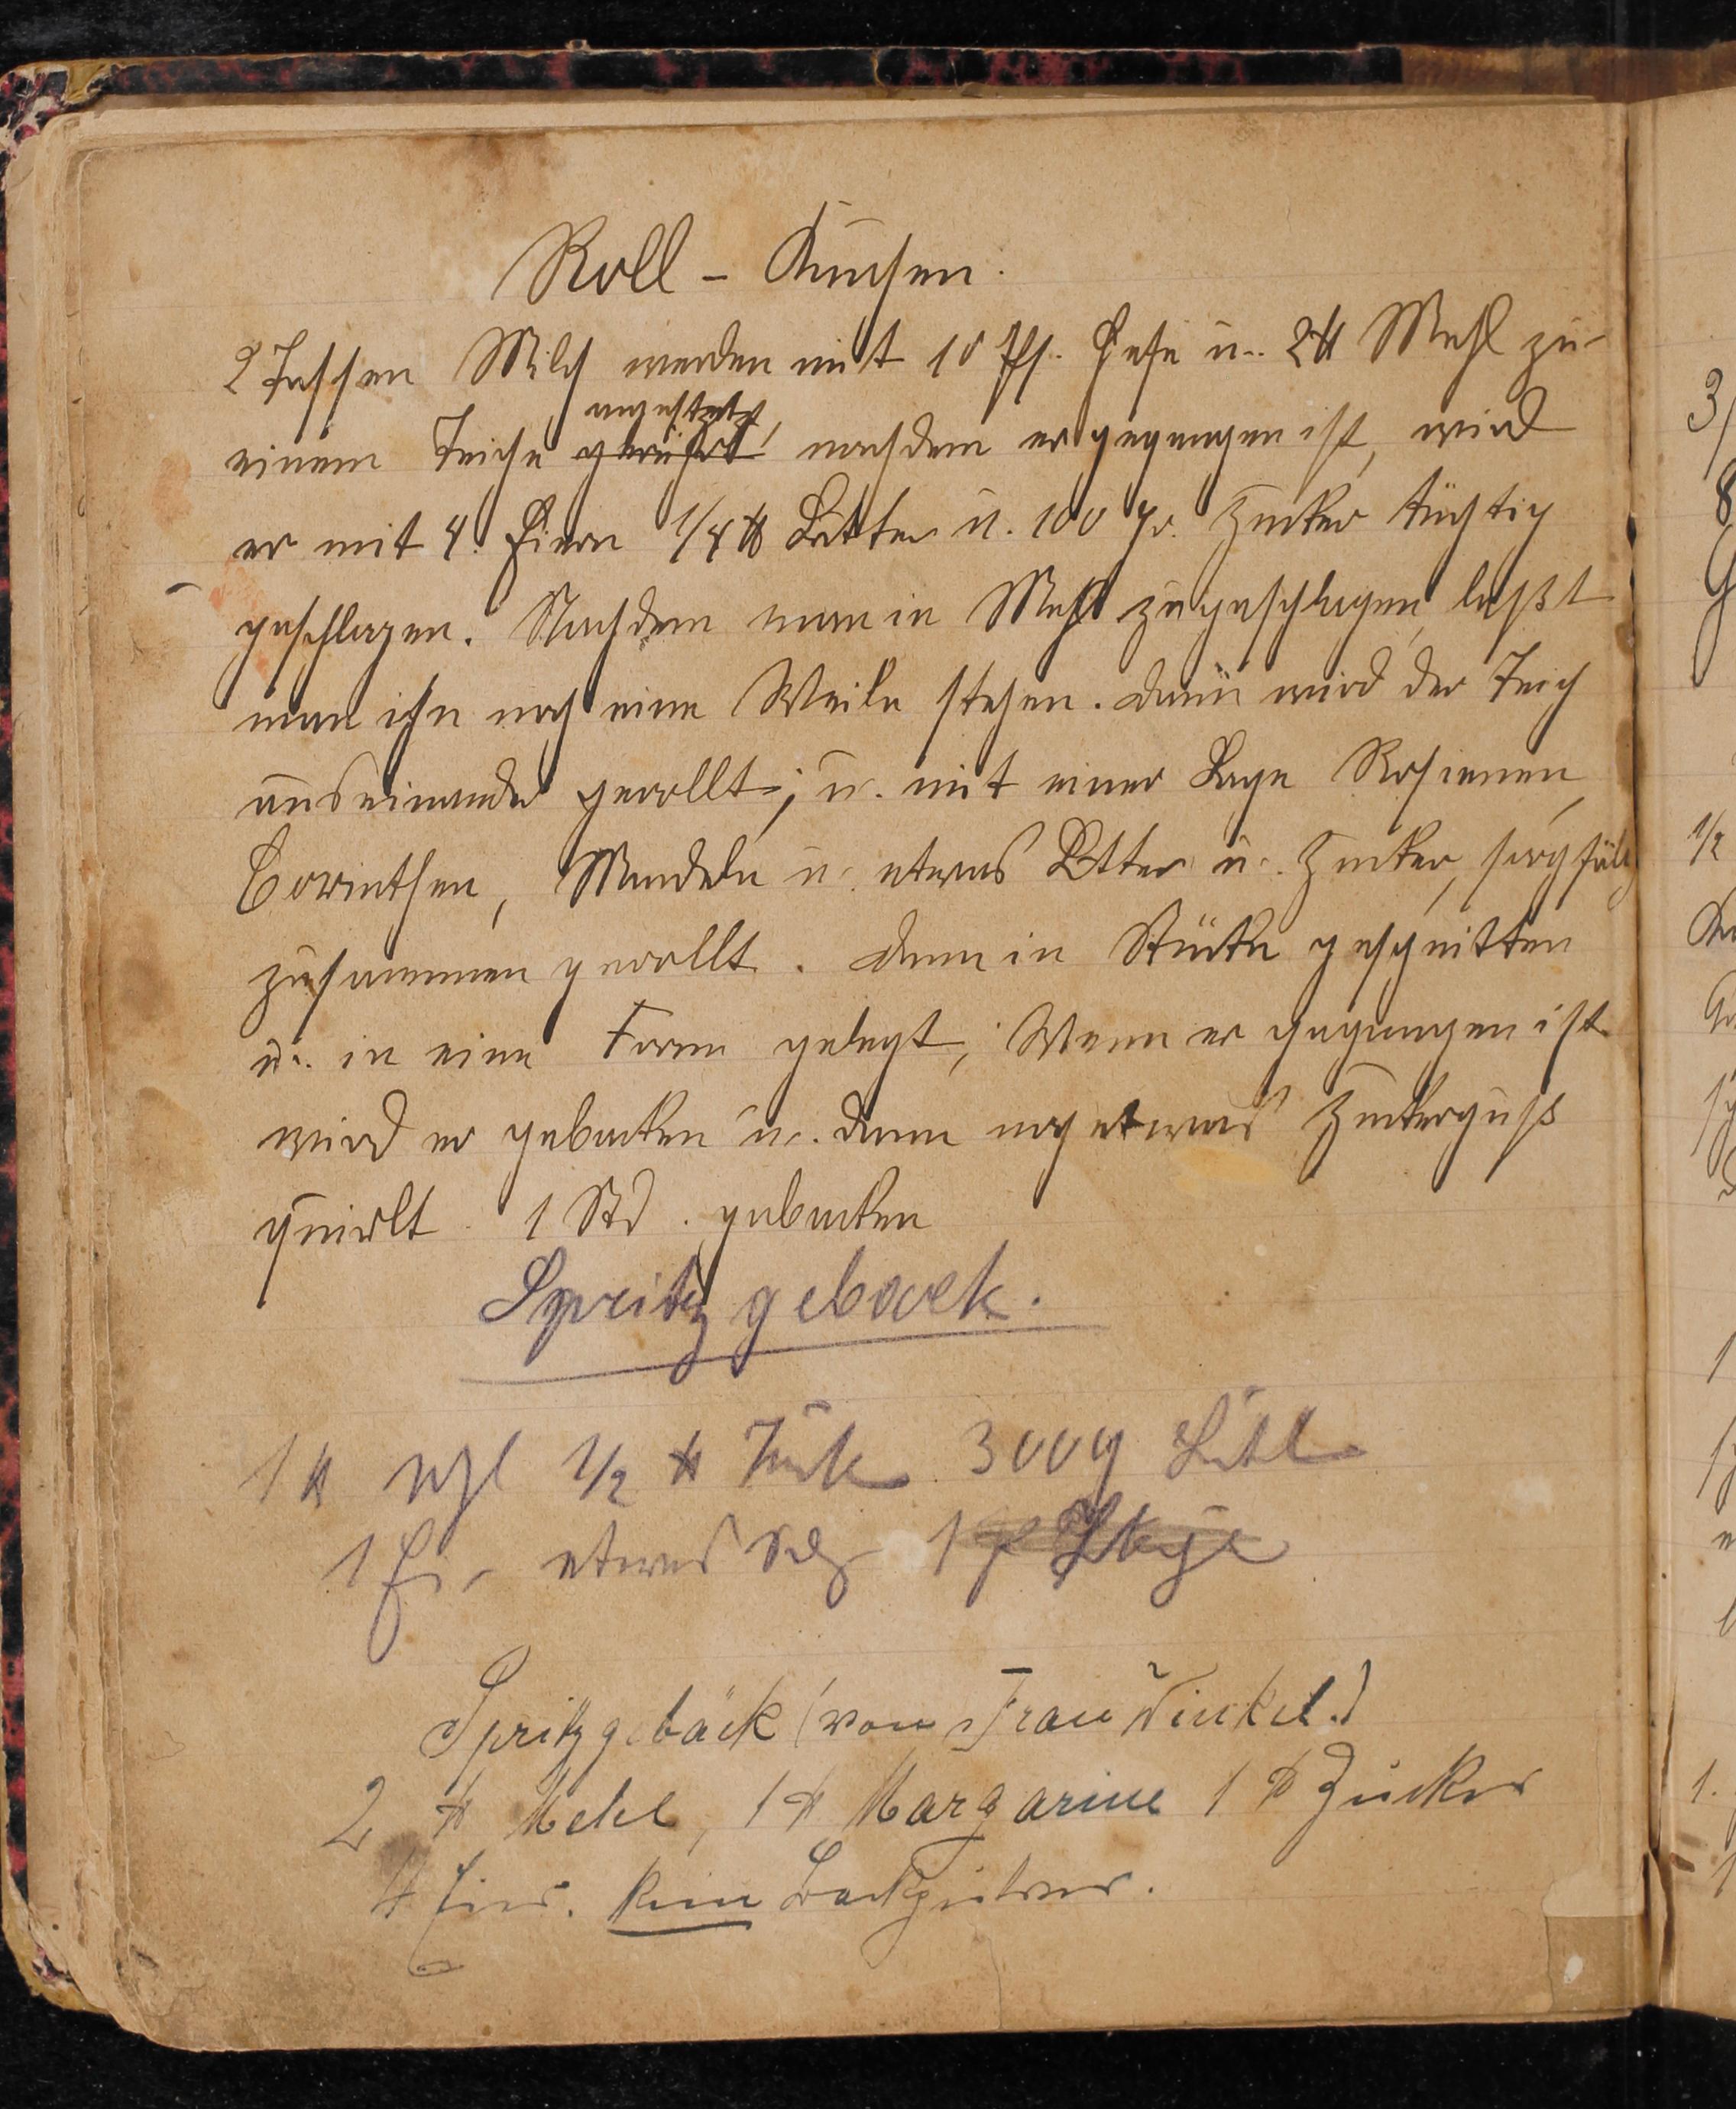 Roll - Kuchen.
2 Tassen Milch werden mit 10 Pfg. Hefe u. 2 ℔ Mehl zu
einem Teiche gerührt angesetzt, nachdem er gegangen ist, wird
er mit 4 Eiern 1/4 ℔ Butter u. 100 gr. Zucker tüchtig
geschlagen. Nachdem man in Mehl zugeschlagen, laßt
man ihn noch eine Weile stehen. dann wird der Teich
auseinander gerollt; u. mit einer Lage Rosienen,
Corinthen, Mandeln u. etwas Butter u. Zucker, sorgfältig
zusammen gerollt. dann in Stücke geschnitten
u. in eine Form gelegt, Wenn er gegangen ist
wird er gebacken u. dann noch etwas Zuckerguß
1 Std. gebacken
Spritzgeback.
1 ℔ Mehl 1/2 ℔ Zuck 300 g Butt
1 Ei, etwas Salz 1
Spritzgebäck (von Frau Winkel.)
2 ℔ Mehl, 1 ℔ Margarine 1 ℔ Zucker
4 Eier. kein Backpulver.
3/
8
1/2
1
1.